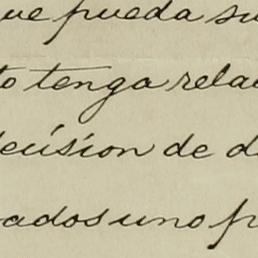 que pueda su
to tenga rela
decísion de d
ados uno p